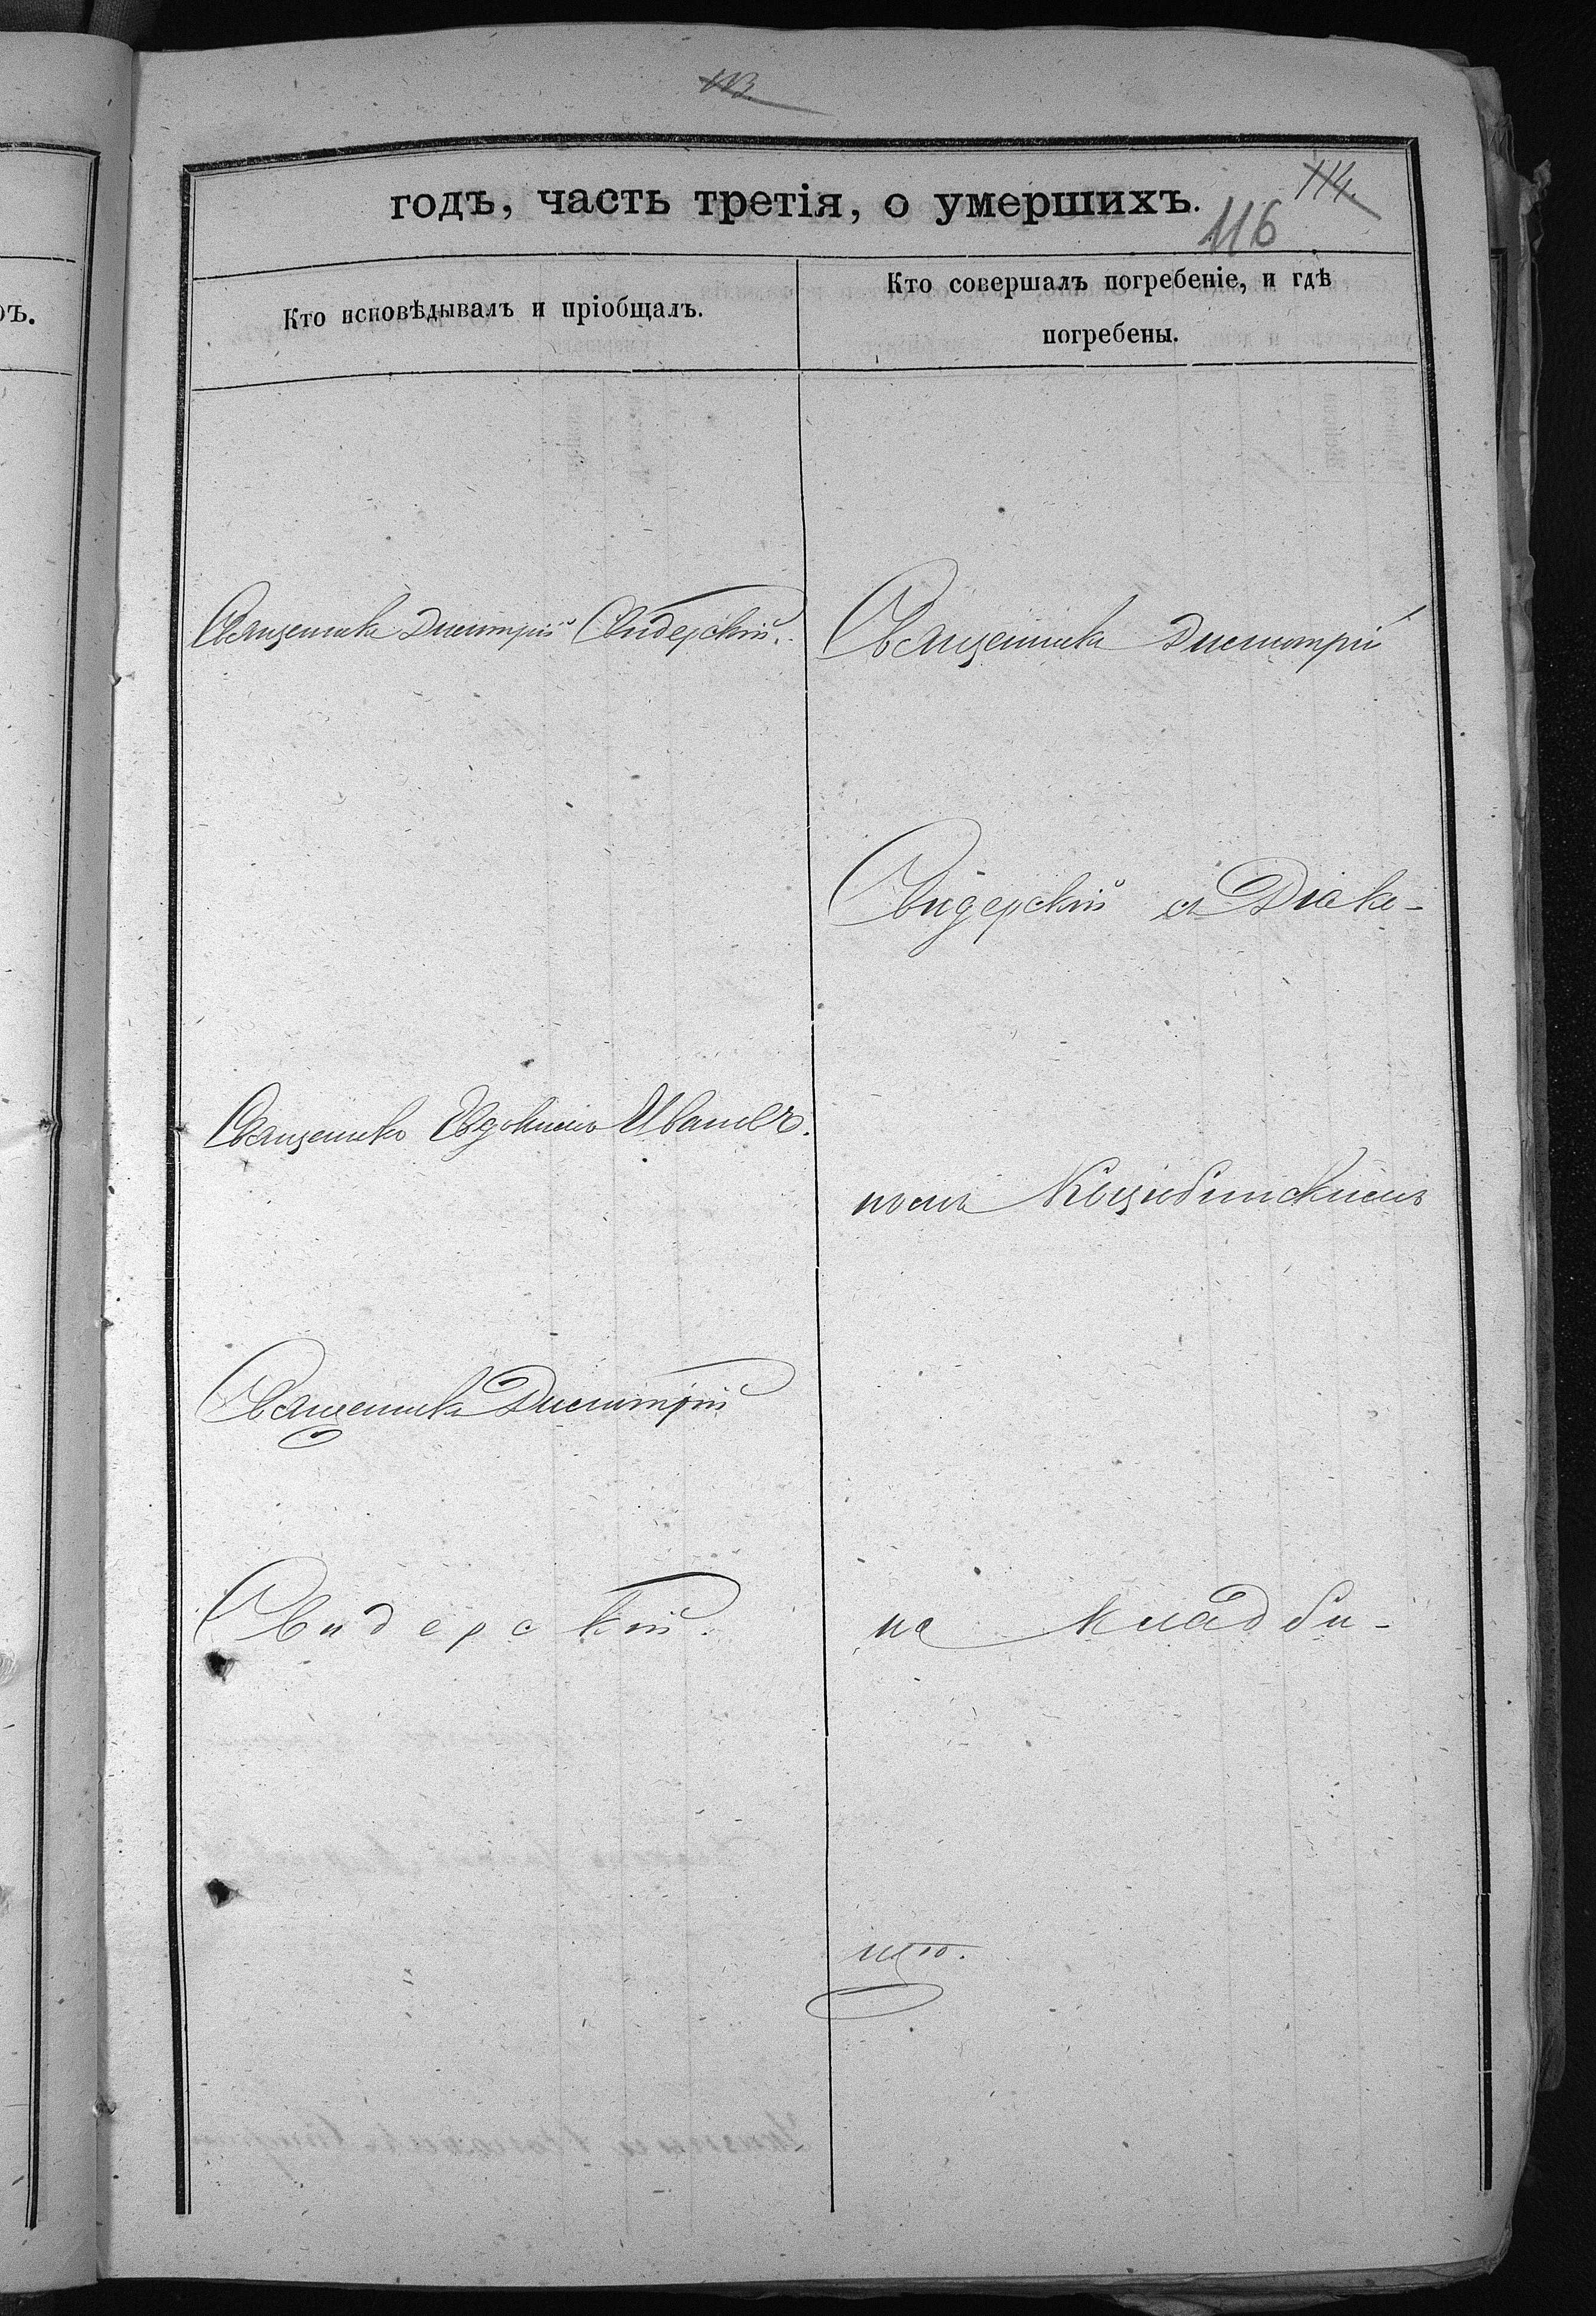 113.
114.
годъ, часть третія, о умершихъ.
116
Кто исповѣдывалъ и пріобщалъ.
Кто совершалъ погребеніе, и гдѣ
погребены.
ъ.
Священникъ Димитрій Свидерскій.
Священникъ Димитрій
Свидерскій съ Діако-
Священникъ Евдокимъ Ивановъ.
номъ
Священникъ Димитрій
Свидерскій.
на кладби-
що.